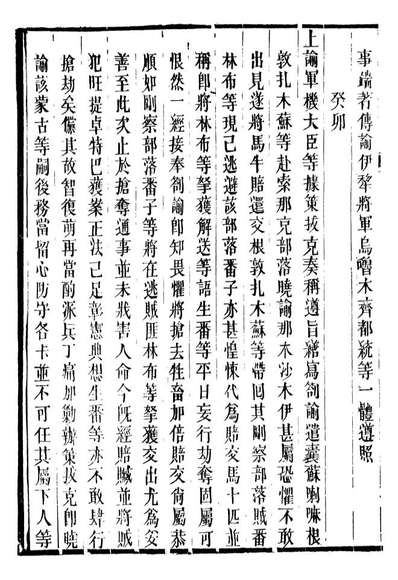 事端著傳諭伊犂將軍烏嚕木齊都統等一體遵照
癸卯
上諭軍機大臣等據策拔克奏稱遵旨繕寫劄諭遣囊蘇喇嘛根
敦扎木蘇等赴索那克部落曉諭那木沙木伊甚屬恐懼不敢
出見遂將馬牛賠還交根敦扎木蘇等據其剛察部落賊番
林布等現已逃避該部落番子亦甚惶悚代為賠交馬十匹並
稱卽將林布等拏獲解送等語生番等平日妄行劫奪固屬可
恨然一經接奉劄諭卽知畏懼將搶去牲畜加倍賠交尚屬恭
順如剛察部落番子等將在逃賊匪林布等拏獲交出尤為妥
善至此次止於搶奪通事並未戕害人命今旣經賠贓並將賊
犯旺提卓特巴獲案正法已足彰憲典想生番等亦不敢肆行
搶劫矣儻其故智復萌再當酌派兵丁痛加勦辦策拔克卽曉
諭該蒙古等嗣後務當留心防守各卡並不可任其屬下人等